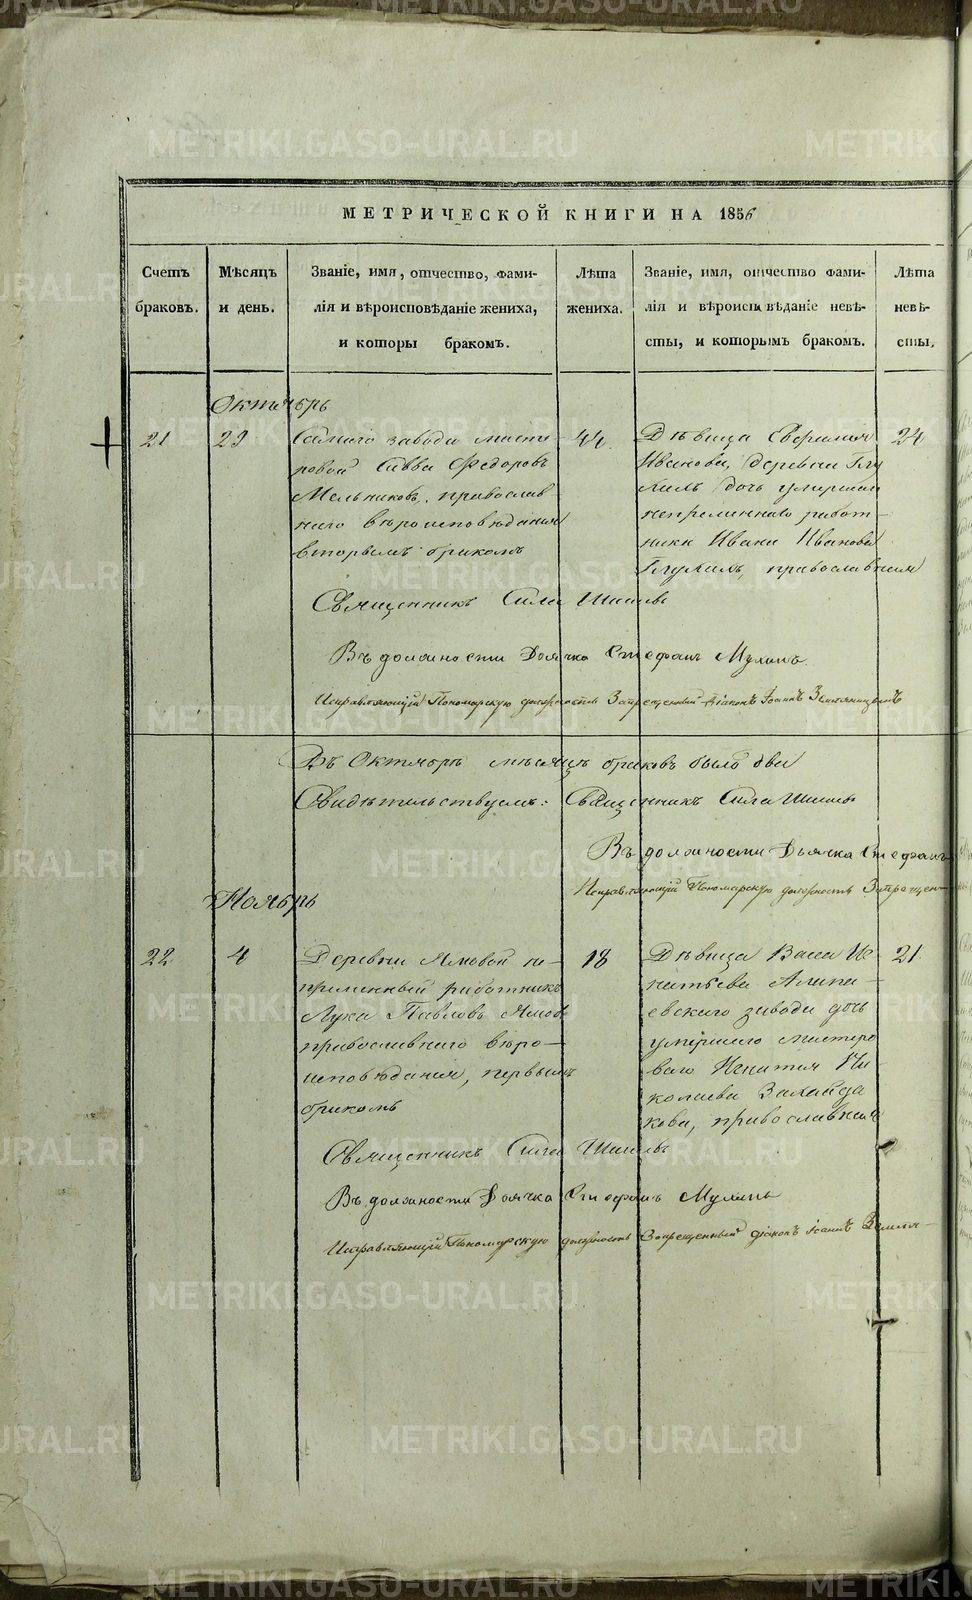 МЕТРИЧЕСКОЙ КНИГИ НА 1856
Счетъ
браковъ.
Мѣсяцъ
и день.
Званіе, имя, отчество, фами-
лія и вѣроисповѣданіе жениха,
и которы бракомъ.
Лѣта
жениха.
Званіе, имя, отчество фами-
лія и вѣроисповѣданіе невѣ-
сты, и которымъ бракомъ.
Лѣта
невѣ-
сты.
Октябрь
21
29
завода масте
ровой Савва Федоровъ
Мельниковъ, православ
наго вѣроисповѣданія
вторымъ бракомъ
44
Дѣвица
Иванова, деревни
дочь умершаго
непременнаго работ-
ника Ивана Иванова
православная
24
Священникъ Сила
Въ должности Дьячка Стефанъ Мулинъ.
Исправляющій Пономарскую должность Запрещенный діаконъ Іоаннъ
Въ Октябрѣ мѣсяцѣ браковъ было два
Свидѣтельствуемъ: Священникъ Сила
Въ должности Дьячка Стефанъ
Исправляющій Пономарскую должность Запрещен-
Ноябрь
22
4
Деревни Ямовой не-
пременный работникъ
Лука Павловъ Ямовъ
православнаго вѣро-
исповѣданія, первымъ
бракомъ
18
Дѣвица Васса Иг
натьева Алапа-
евскаго завода дочь
умершаго мастеро
ваго Игнатія Ни
колаева
кова, православная
21
Священникъ Сила
Въ должности Дьячка Стефанъ Мулинъ
Исправляющій Пономарскую должность Запрещенный діаконъ Іоаннъ
METRIKI.GASO-URAL.RU